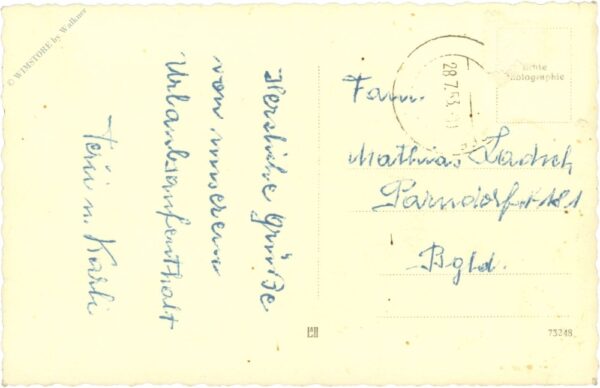 © WIMSTORE by Walkner
Herzliche Grüße
von unserem
Urlaubsaufenthalt
Feri u. Karli
28.7.53
Echte
Photographie
Fam.
Mathias
Parndorf 181
Bgld.
73248